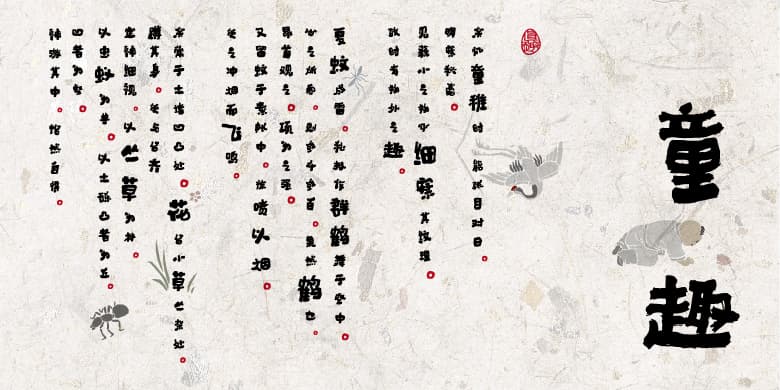 童趣
余忆童稚时 能张目对日。
明察秋毫。
见藐小之物必细察其纹理。
故时有物外之趣。
夏蚊成雷。私拟作群鹤舞于空中。
心之所向。则或千或百。果然鹤也。
昂首观之。项为之强。
又留蚊于素帐中。徐喷以烟。
使之冲烟而飞鸣。
余常于土墙凹凸处。花台小草丛杂处。
蹲其身。使与台齐
定神细视。以丛草为林。
以虫蚁为兽。以土砾凸者为丘。
凹者为壑。
神游其中。怡然自得。